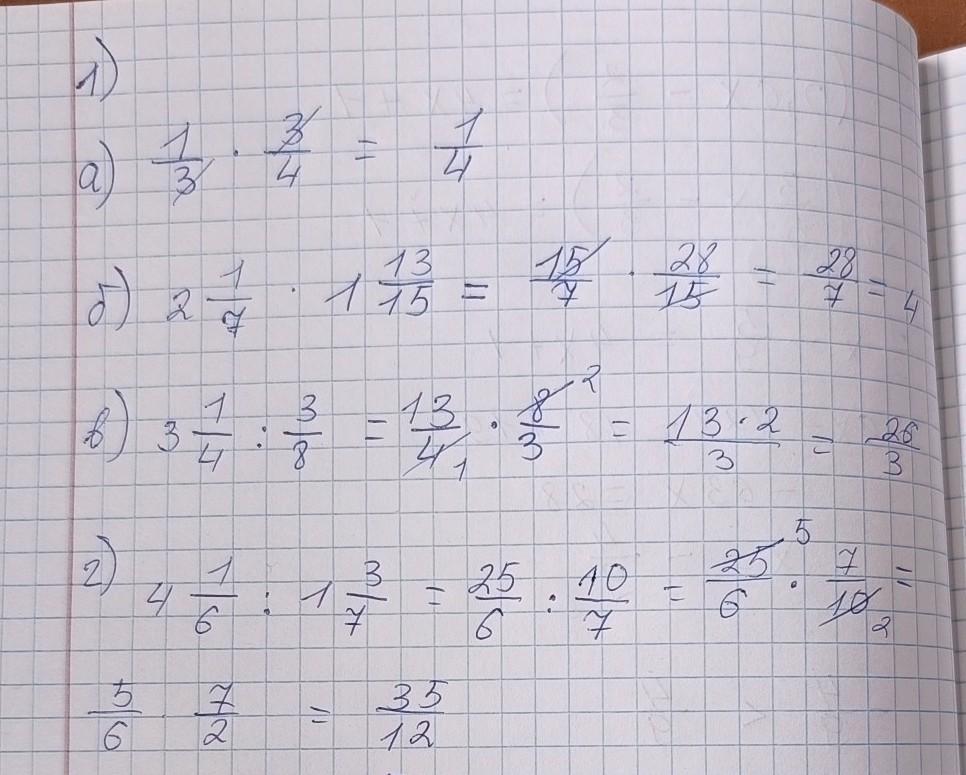 1)
а) 1/3 · 3/4 = 1/4
б) 2 1/7 · 1 13/15 = 15/7 · 28/15 = 28/7 = 4
в) 3 1/4 : 3/8 = 13/4 1 · 8/3 2 = 13·2/3 = 26/3
г) 4 1/6 : 1 3/7 = 25/6 : 10/7 = 25/6 5 · 7/10 2 =
5/6 · 7/2 = 35/12